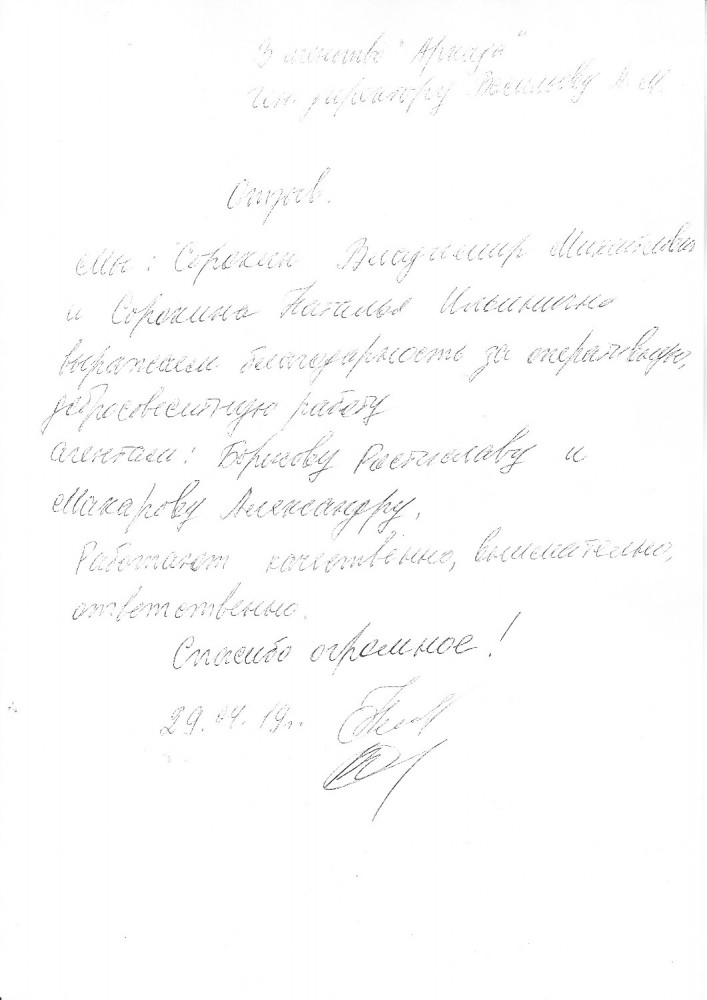 В агентство "Аркада"
Ген. директору Васильеву А. М.
Отзыв.
Мы: Сорокин Владимир Михайлович
и Сорокина Наталья Ильинична
выражаем благодарность за оперативную,
добросовестную работу
агентам: Борисову Ростиславу и
Макарову Александру.
Работают качественно, внимательно,
ответственно.
Спасибо огромное!
29.04.19г.